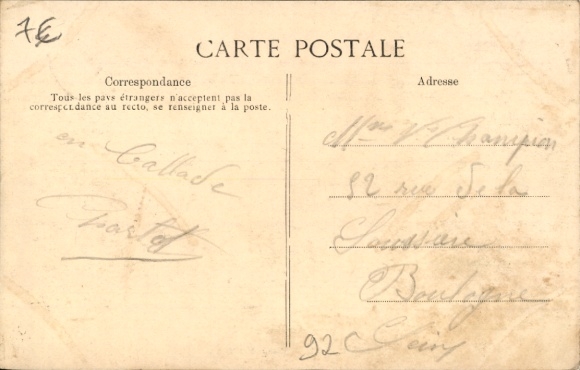 7€
CARTE POSTALE
Correspondance
Tous les pays étrangers n'acceptent pas la
correspondance au recto, se renseigner à la poste.
en Ballade
Adresse
Mme Vve Champion
92 rue de la
Boulogne
92 Seine